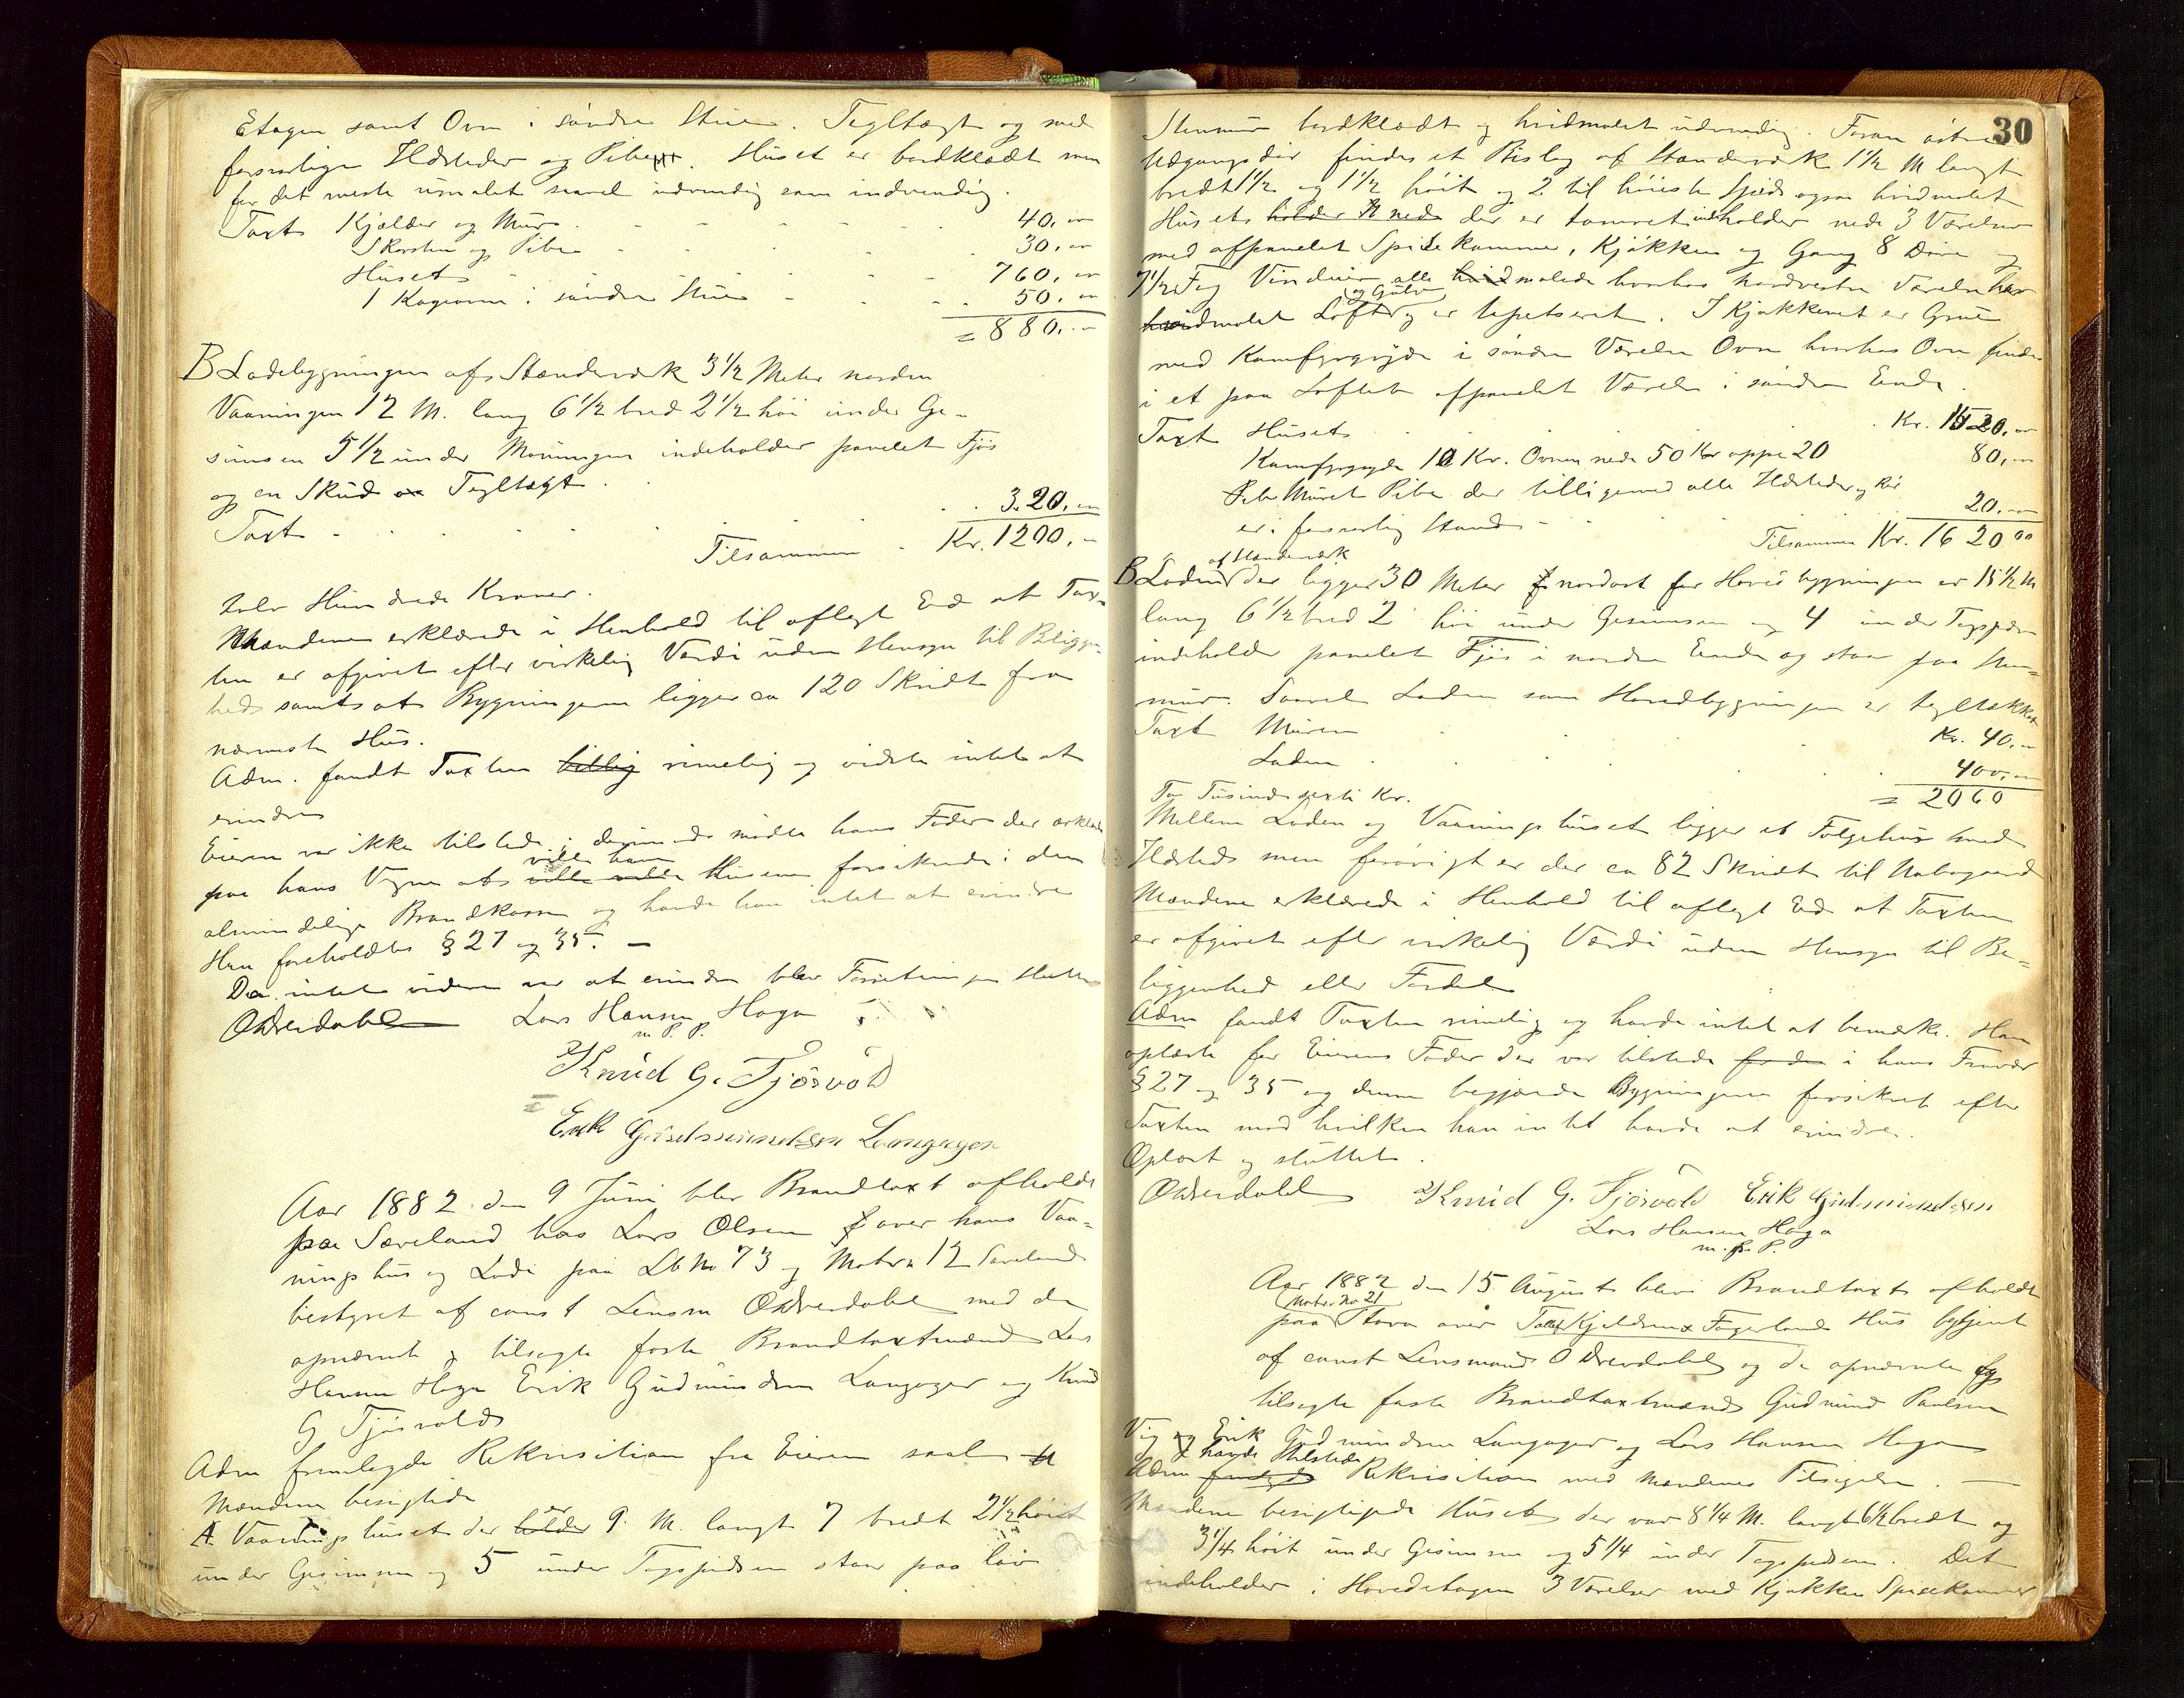 Etagen samt Ovn i søndre Stue. Tegltægt og med
forsvarlige Ildsteder og Pibe. Huset er bordklædt men
for det meste umalet saavel udvendig som indvendig.
Taxt Kjælder og Mur 40,00
Skorsten og Pibe 30,00
Huset 760,00
1 Kogeovn i søndre Stue 50,00
= 880,00
B Ladebygningen af Standerværk 3 1/2 Meter norden
Vaaningen 12 M. lang 6 1/2 bred 2 1/2 høi under Ge-
simsen 5 1/2 under Mønningen indeholder panelet Fjøs
og en Skud Tegltægt.
Taxt 320,00
Tilsammen Kr. 1200,-
tolv Hundrede Kroner.
Mændene erklærede i Henhold til aflagt Ed at Tax-
ten er afgivet efter virkelig Værdi uden Hensyn til Beligge-
hed samt at Bygningerne ligger ca 120 Skridt fra
nærmeste Hus.
Adm. fandt Taxten billig rimelig og vidste intet at
erindre
Eieren var ikke tilstede, derimod mødte hans Fader der erklærede
ville have
paa hans Vegne at ville Husene forsikrede i den
almindelige Brandkasse og havde han intet at erindre
Ham foreholdtes § 27 og 35. -
Da intet videre var at erindre blev Forretningen sluttet
Odverdahl Lars Hansen Haga
m. P. P.
Knud G. Tjøsvold
Erik Gudmundsen Langager
Aar 1882 den 9 Juni blev Brandtaxt afholdt
paa Sæveland hos Lars Olsen over hans Vaa-
ningshus og Lade paa Lb No 73 og Matr. n 12 Sæveland
bestyret af const Lensm Odverdahl med de
opnævnte og tilsagte faste Brandtaxtmænd Lars
Hansen Haga Erik Gudmundsen Langager og Knud
G Tjøsvold
Adm fremlagde Rekvisition fra Eieren
Mændene besigtede
A. Vaaningshuset der er holder 9 M. langt 7 bredt 2 1/2 høit
under Gesimsen og 5 under Tagspidsen staar paa lav
30
Stenmur bordklædt og hvidmalet udvendig. Foran østre
Udgangsdør findes et Bislag af Standerværk 1 1/2 M langt
bredt 1 1/2 og 1 1/2 høit og 2 til høieste Spids ogsaa hvidmalet
Huset holder nede der er tømret indholder nede 3 Værelser
med afpanelet Spisekammer, Kjøkken og Gang 8 Døre og
7 1/2 Fag Vinduer alle hvidmalede hvorhos nordvestre Værelse har
og Gulv
hvidmalet Loft og er tapetseret. I Kjøkkenet er Grue
med Komfyrgryde i søndre Værelse Ovn hvorhos Ovn findes
i et paa Loftet afpanelet Værelse i søndre Ende.
Taxt Huset Kr. 1520,00
Komfyrgryde 10 Kr. Ovnen nede 50 Kr oppe 20 80,00
Muret Pibe der tilligemed alle Ildsteder og Rør
er i forsvarlig Stand 20,00
Tilsammen Kr. 1620 00
af Standerværk
B Laden der ligger 30 Meter nordost for Hovedbygningen er 15 1/2 M
lang 6 1/2 bred 2 høi under Gesimsen og 4 under Tagspidsen
indeholder panelet Fjøs i nordre Ende og staar paa Sten-
mur. Saavel Laden som Hovedbygningen er tegltækket
Taxt Muren Kr. 40,00
Laden 400,00
To Tusinde sexti Kr. = 2060
Mellem Laden og Vaaningshuset ligger et Folgehus med
Ildsted men forøvrigt er der ca 82 Skridt til Nabogaard
Mændene erklærede i Henhold til aflagt Ed at Taxten
er afgivet efter virkelig Værdi uden Hensyn til Be-
liggenhed eller Fordel
Adm fandt Taxten rimelig og havde intet at bemærke. Han
oplæste for Eierens Fader der var tilstede for den i hans Fravær
§ 27 og 35 og denne begjærede Bygningerne forsikret efter
Taxten mod hvilken han intet havde at erindre.
Oplæst og sluttet.
Odverdahl Knud G. Tjøsvold Erik Gudmundsen
Lars Hansen Haga
m. P. P.
Aar 1882 den 15 August blev Brandtaxt afholdt
Matr. No 21
paa Stava over Kjeldsen Fagerland Hus betjent
af const Lensmand Odverdahl og de opnævnte og
tilsagte faste Brandtaxtmænd Gudmund Paulsen
Vig og Erik Gudmundsen Langager og Lars Hansen Haga
havde tilstede
Adm fremlagde Rekvisition med Mændenes Tilsigelse.
Mændene besigtigede Huset der var 8 1/4 M. langt 6 1/2 bredt og
3 1/4 høit under Gesimsen og 5 1/4 under Tagspidsen. Det
indeholder i Hovedetagen 3 Værelser med Kjøkken Spisekammer